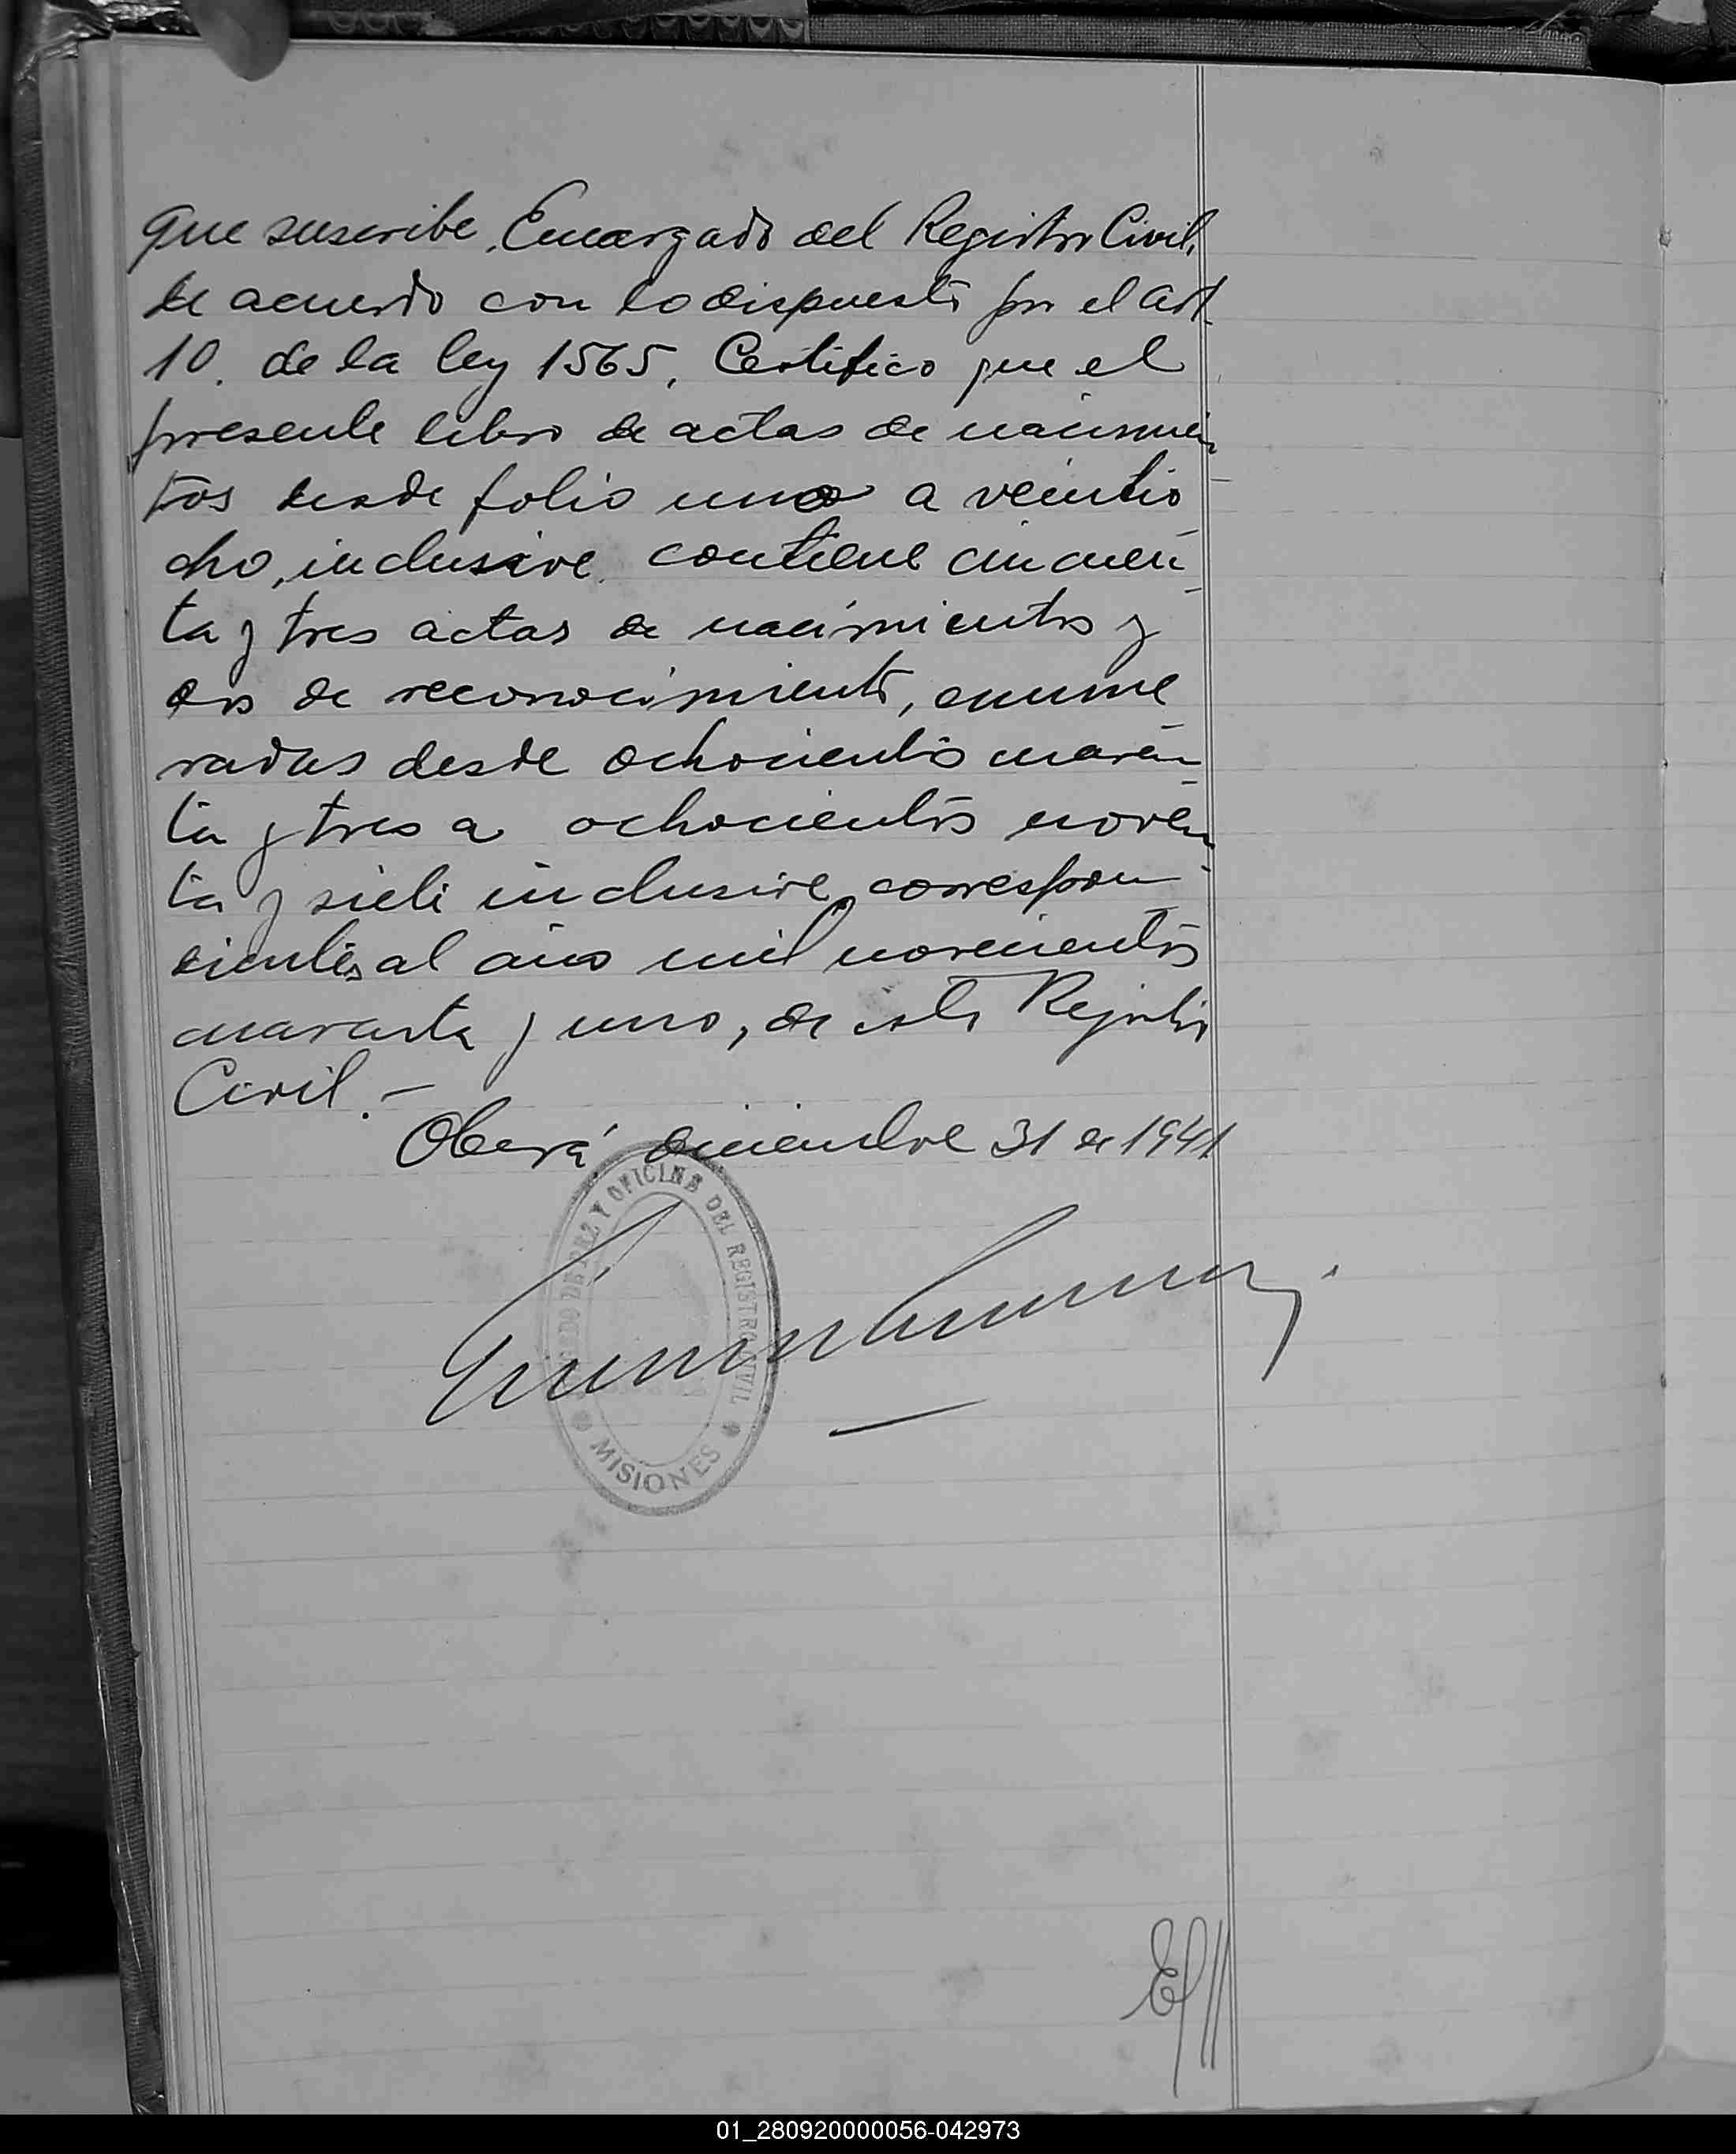 que suscribe, Encargado del Registro Civil,
de acuerdo con lo dispuesto por el art.
10. de la ley 1565, Certifico que el
presente libro de actas de nacimien
tos desde folio uno a veintio
cho, inclusive contiene cincuen
ta y tres actas de nacimientos y
dos de reconocimiento, enume
radas desde ochocientos cuaren
ta y tres a ochocientos noven
ta y siete inclusive, correspon
dientes al año mil novecientos
cuarenta y uno, de este Registro
Civil.-
Oberá diciembre 31 de 1941
JUZGADO DE PAZ Y OFICINA DEL REGISTRO CIVIL
MISIONES
01_280920000056-042973